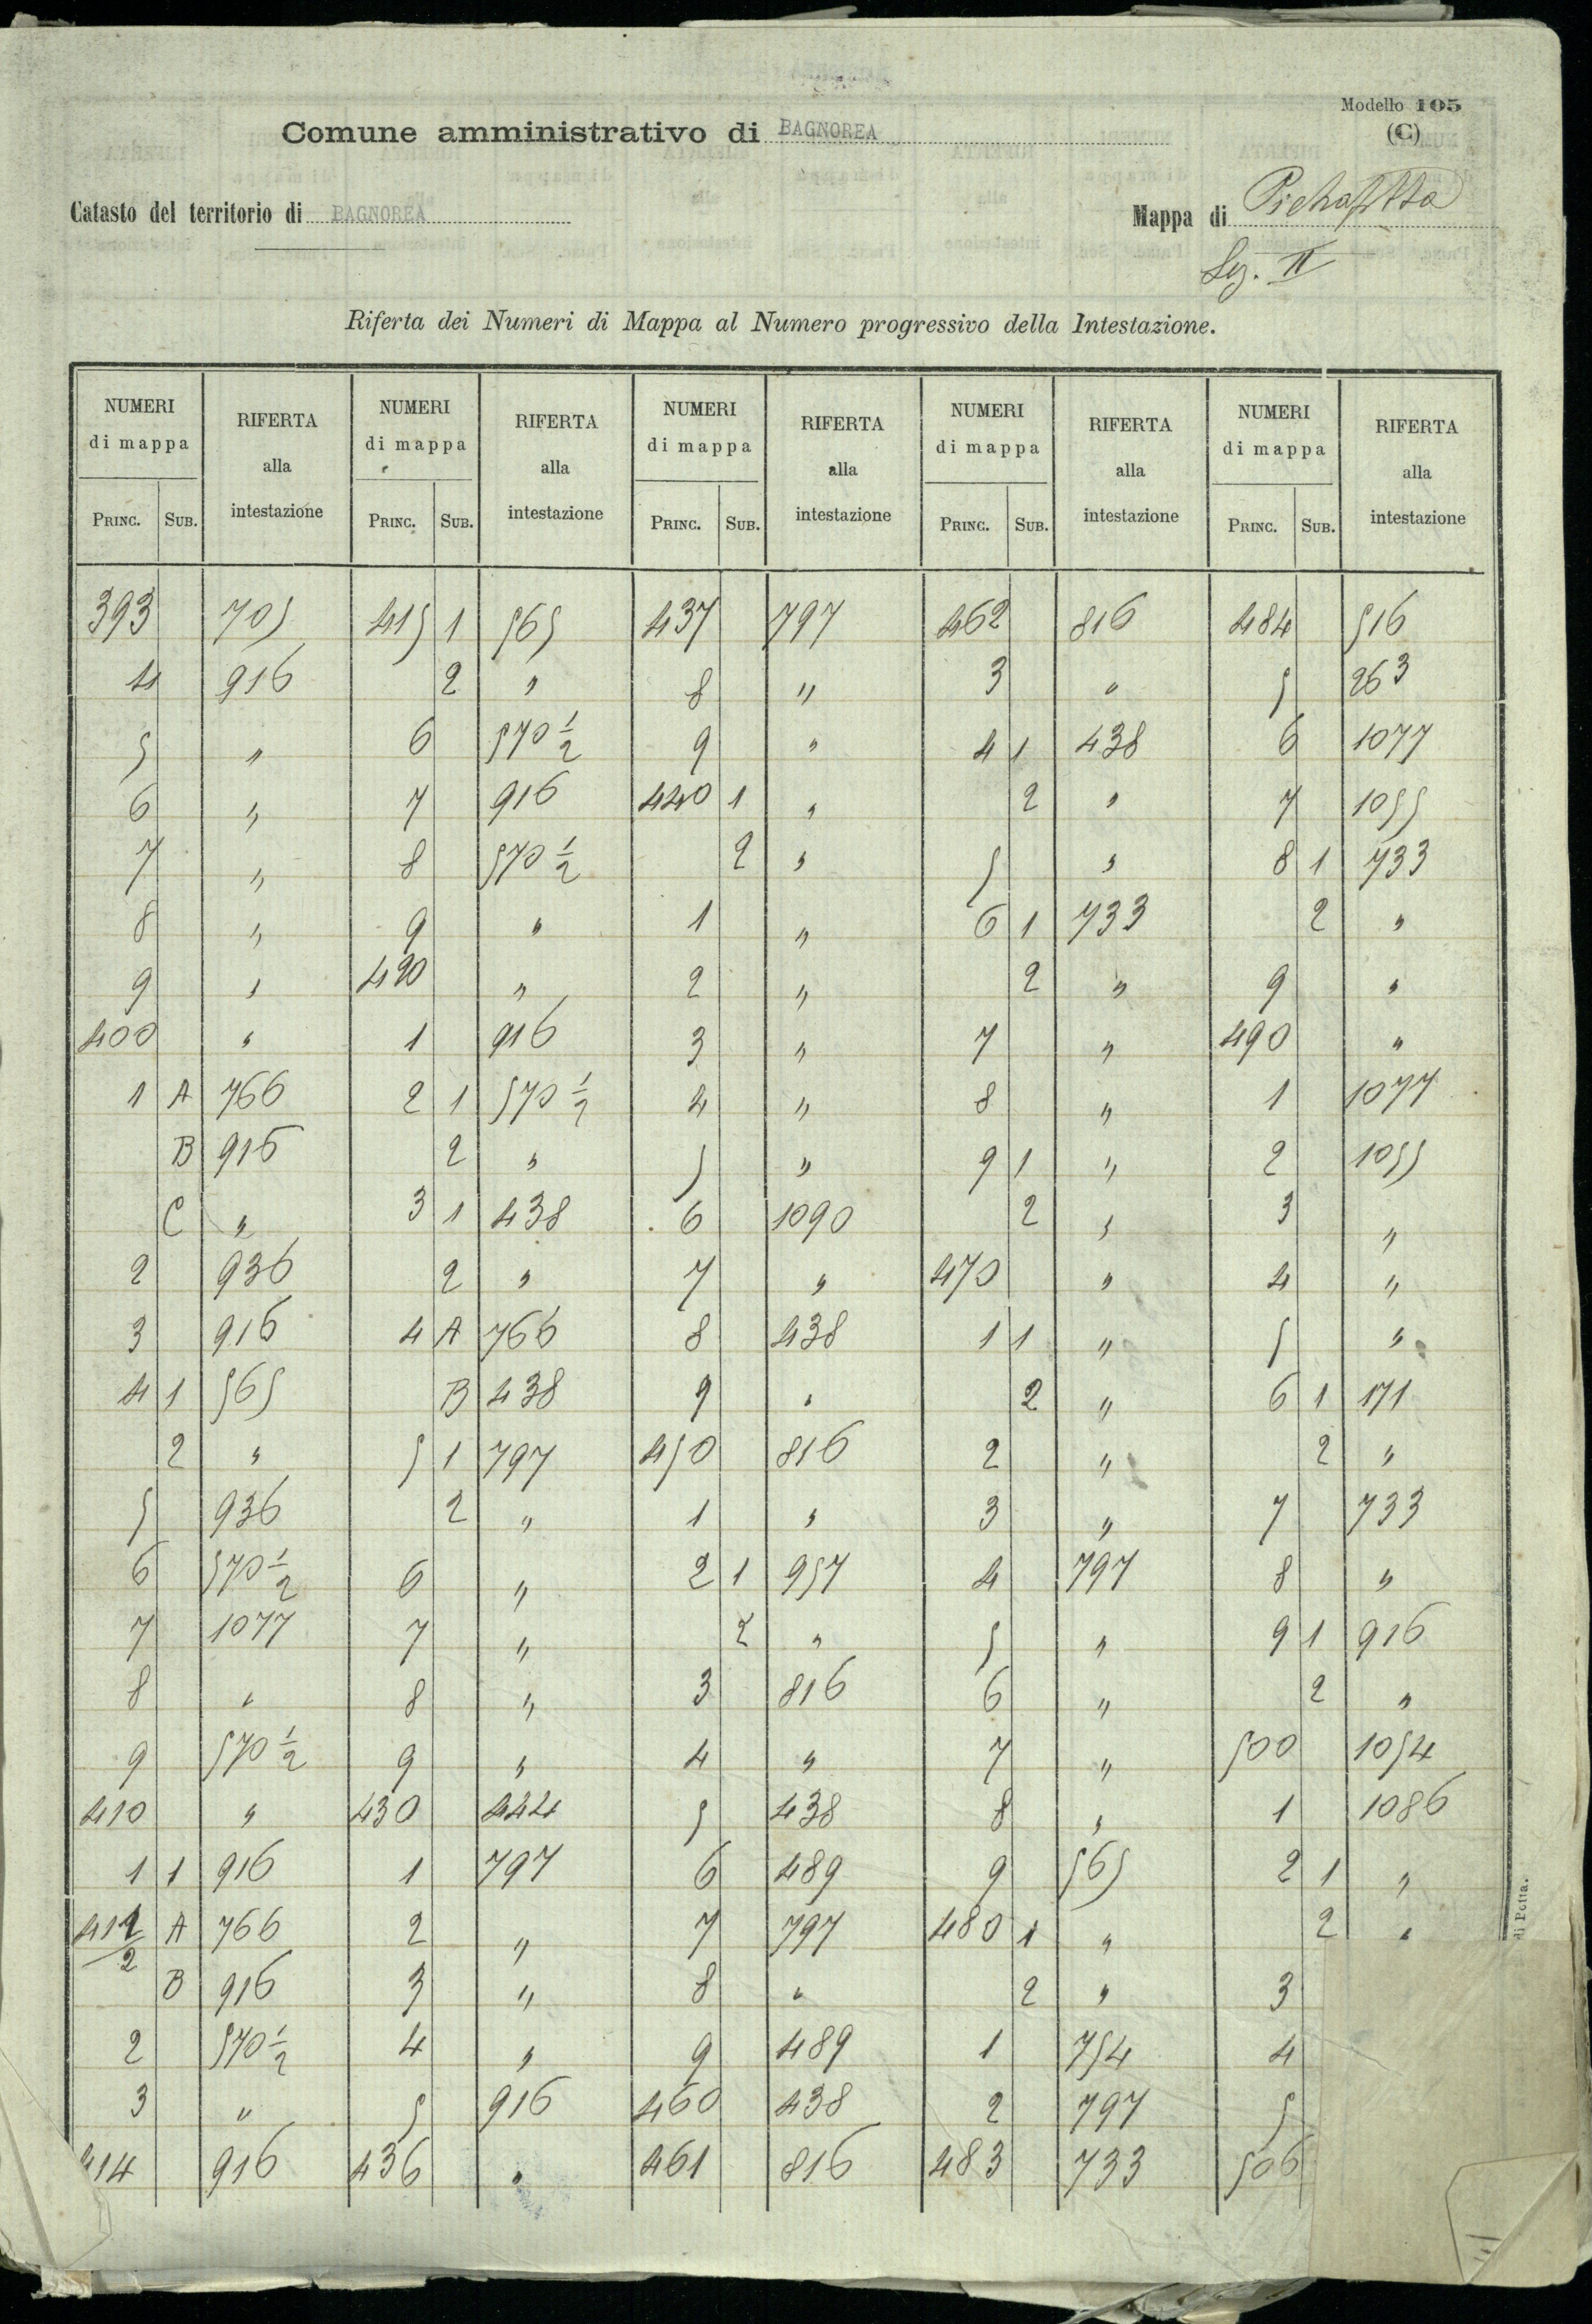 Modello 105
(C)
Comune amministrativo di BAGNOREA
Catasto del territorio di BAGNOREA
Mappa di
Sez. II
Riferta dei Numeri di Mappa al Numero progressivo della Intestazione.
NUMERI RIFERTA NUMERI RIFERTA NUMERI RIFERTA NUMERI RIFERTA NUMERI RIFERTA
di mappa alla di mappa alla di mappa alla di mappa alla di mappa alla
PRINC. SUB. intestazione PRINC. SUB. intestazione PRINC. SUB. intestazione PRINC. SUB. intestazione PRINC. SUB. intestazione
393 705 415 1 565 437 797 462 816 484 516
4 916 2 " 8 " 3 " 5 263
5 " 6 570 1/2 9 " 4 1 438 6 1077
6 " 7 916 440 1 " 2 " 7 1055
7 " 8 570 1/2 2 " 5 " 8 1 733
8 " 9 " 1 " 6 1 733 2 "
9 " 420 " 2 " 2 " 9 "
400 " 1 916 3 " 7 " 490 "
1 A 766 2 1 570 1/2 4 " 8 " 1 1077
B 916 2 " 5 " 9 1 " 2 1055
C " 3 1 438 6 1090 2 " 3 "
2 936 2 " 7 " 470 " 4 "
3 916 4 A 766 8 438 1 1 " 5 "
4 1 565 B 438 9 " 2 " 6 1 171
2 " 5 1 797 450 816 2 " 2 "
5 936 2 " 1 " 3 " 7 733
6 570 1/2 6 " 2 1 957 4 797 8 "
7 1077 7 " 2 " 5 " 9 1 916
8 " 8 " 3 816 6 " 2 "
9 570 1/2 9 " 4 " 7 " 500 1054
410 " 430 444 5 438 8 " 1 1086
1 1 916 1 797 6 489 9 565 2 1 "
411/2 A 766 2 " 7 797 480 1 " 2 "
B 916 3 " 8 " 2 " 3
2 570 1/2 4 " 9 489 1 754 4
3 " 5 916 460 438 2 797 5
414 916 436 " 461 816 483 733 506
di Potta.